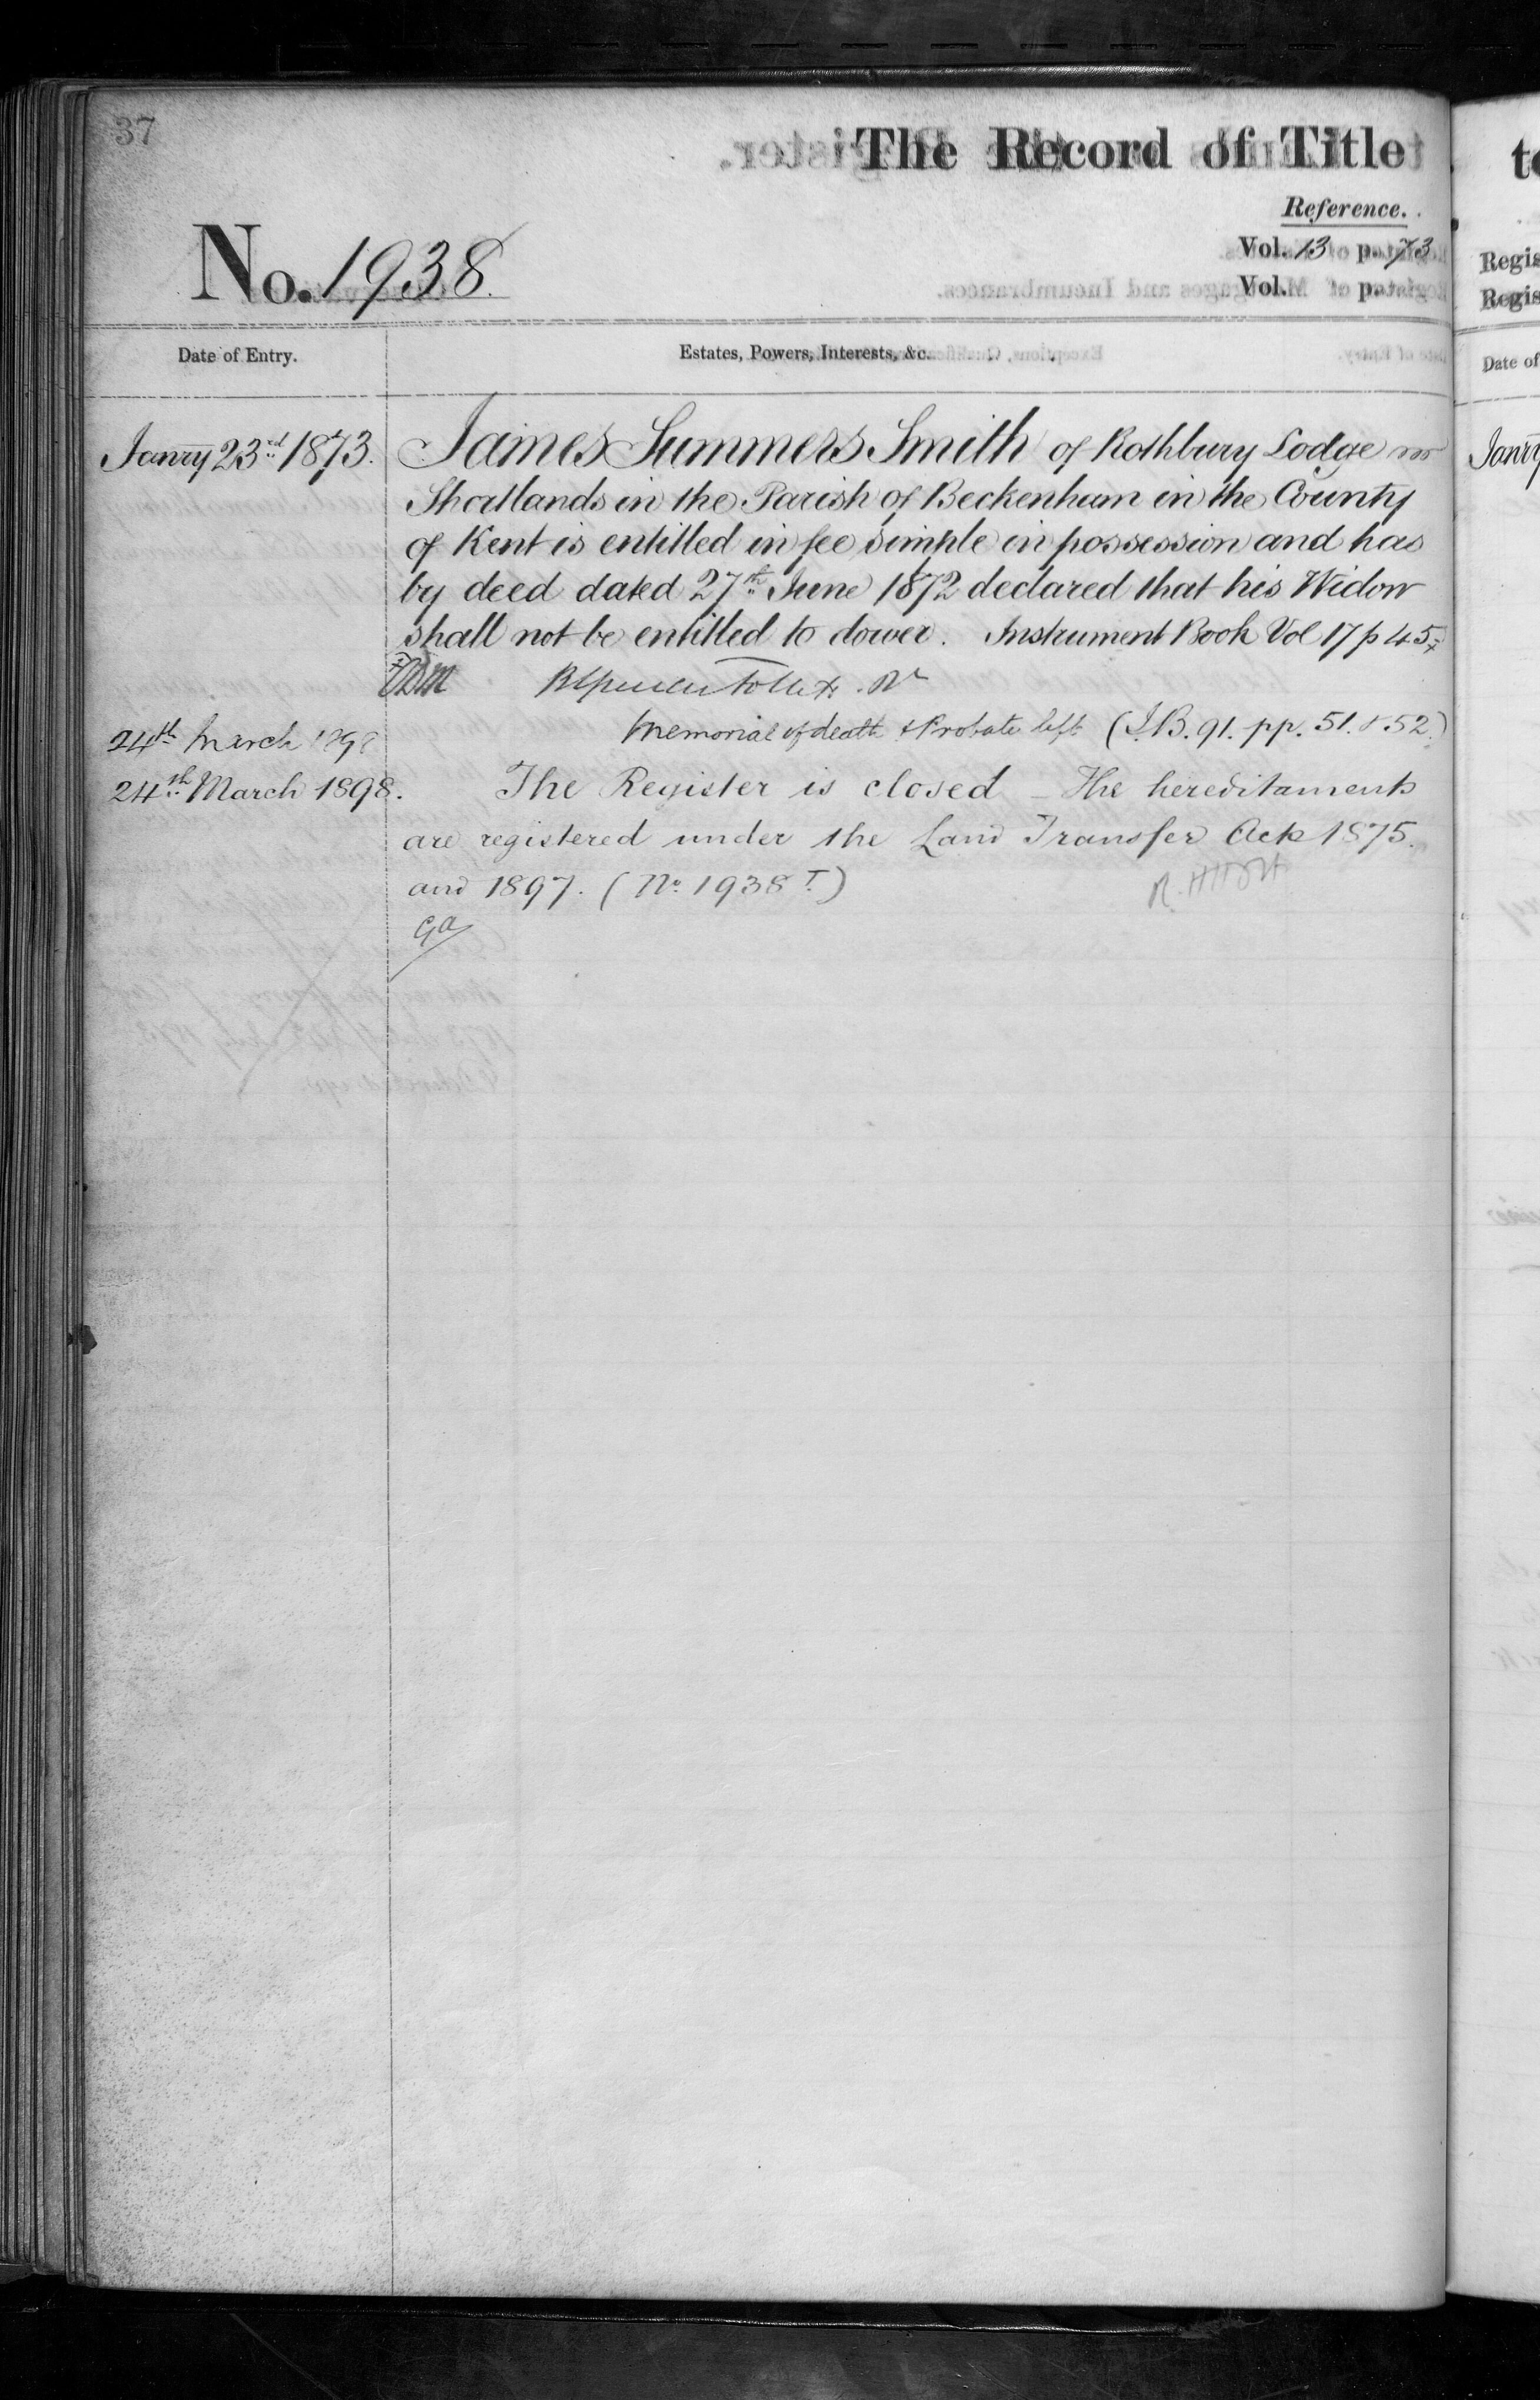 37
The Record of Title
Reference.
No. 1938.
Vol. 13 p. 73
Vol. p.
Date of Entry.
Estates, Powers, Interests, &c.
Janry 23rd 1873.
James Summers Smith of Rothbury Lodge
Shortlands in the Parish of Beckenham in the County
of Kent is entitled in fee simple in possession and has
by deed dated 27th June 1872 declared that his Widow
shall not be entitled to dower. Instrument Book Vol 17 p 45
24th March 1898
Memorial of death & Probate left (I.B. 91. pp. 51. & 52.)
24th March 1898.
The Register is closed – The hereditaments
are registered under the Land Transfer Acts 1875.
and 1897. (No. 1938 T.)
to
Regis
Regis
Date of
Janry